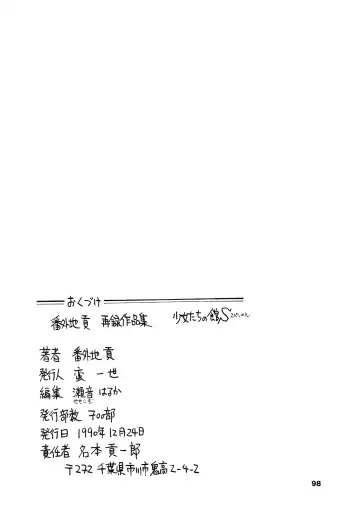 おくづけ
番外地貢 再録作品集 少女たちの館S
著者 番外地貢
発行人 蛮 一世
編集 瀬音 はるか
せせころ
発行部数 700部
発行日 1990年12月24日
責任者 名本貢一郎
〒272 千葉県市川市鬼高2-4-2
98